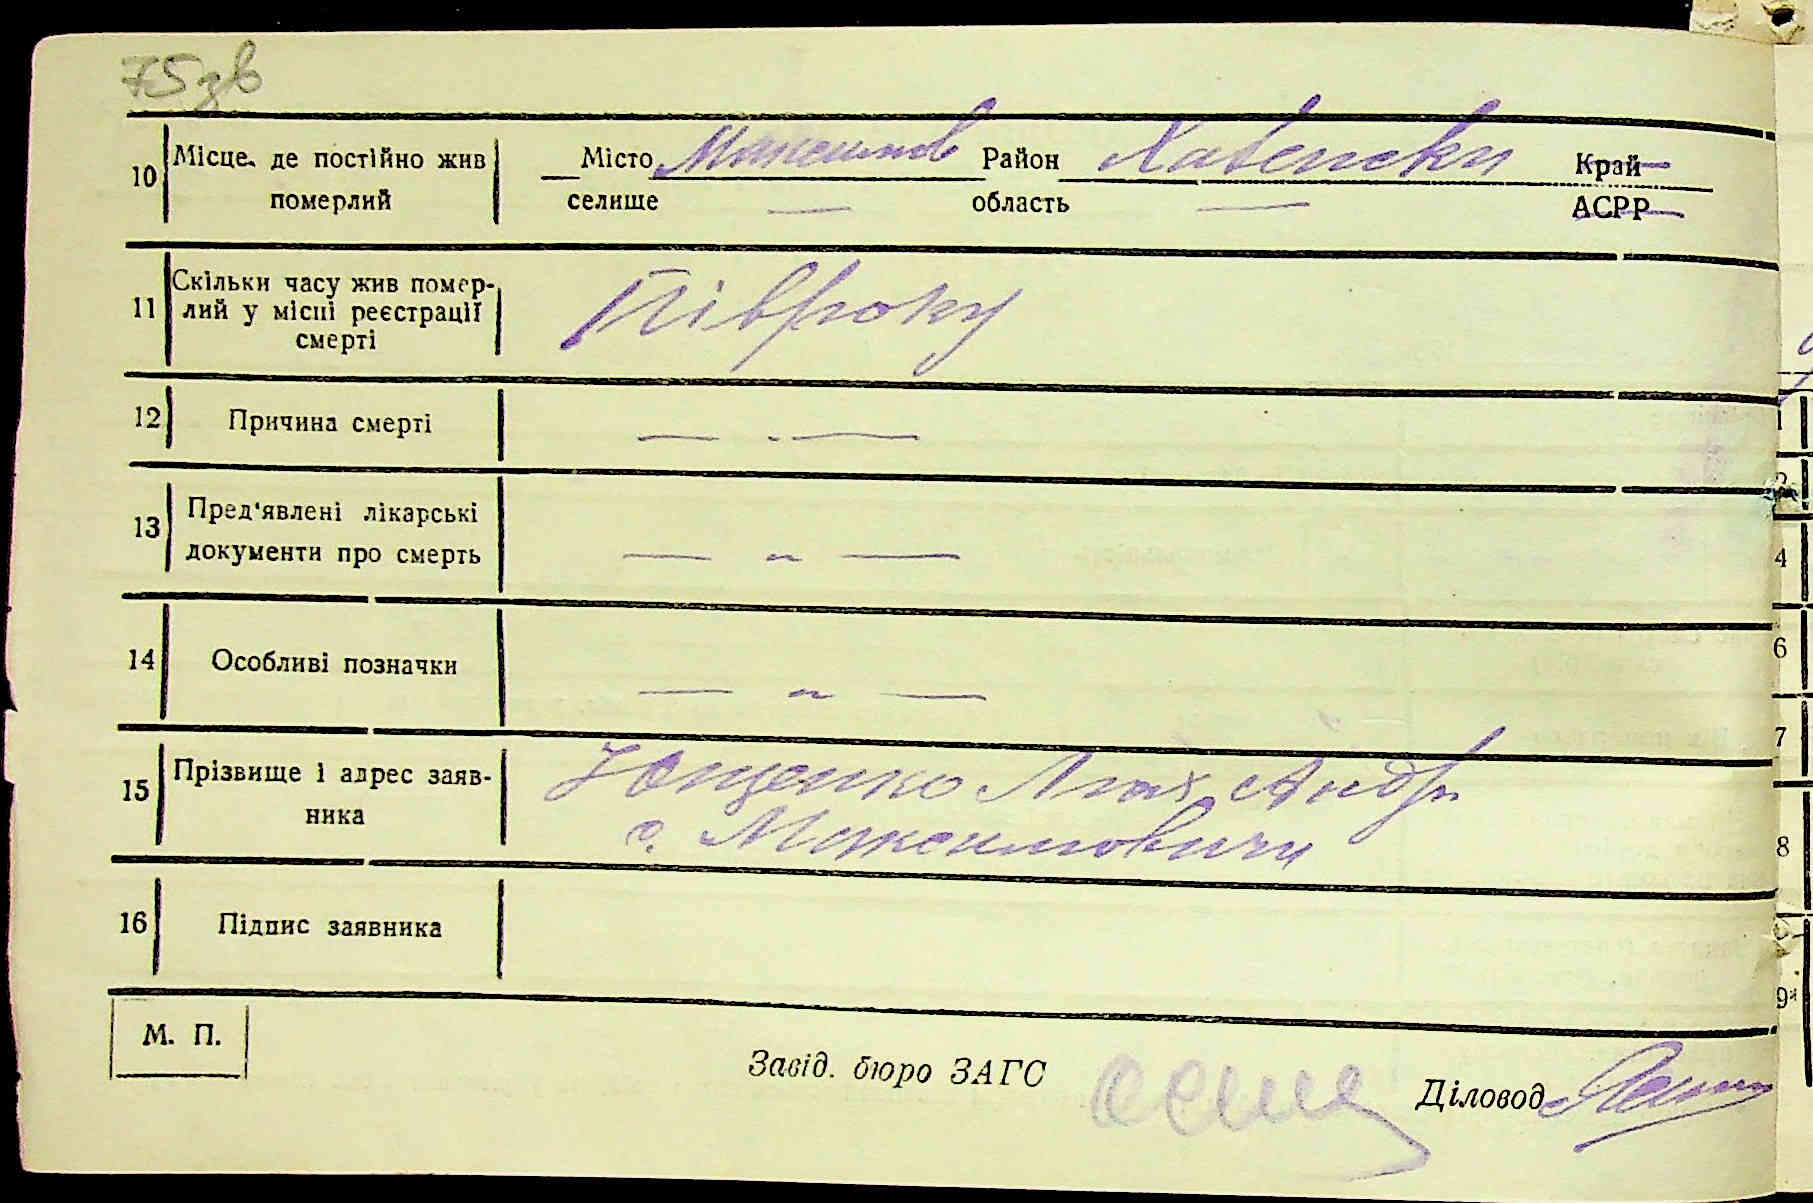 75зв
10 Місце, де постійно жив Місто Район Хабенски Край
померлий селище — область — АСРР
11 Скільки часу жив помер-
лий у місці реєстрації Півроку
смерті
12 Причина смерті — . —
13 Пред'явлені лікарські
документи про смерть — „ —
14 Особливі позначки — „ —
15 Прізвище і адрес заяв- Ющенко Андр
ника с. Максимовичи
16 Підпис заявника
М. П.
Завід. бюро ЗАГС Діловод
2
4
6
7
8
9